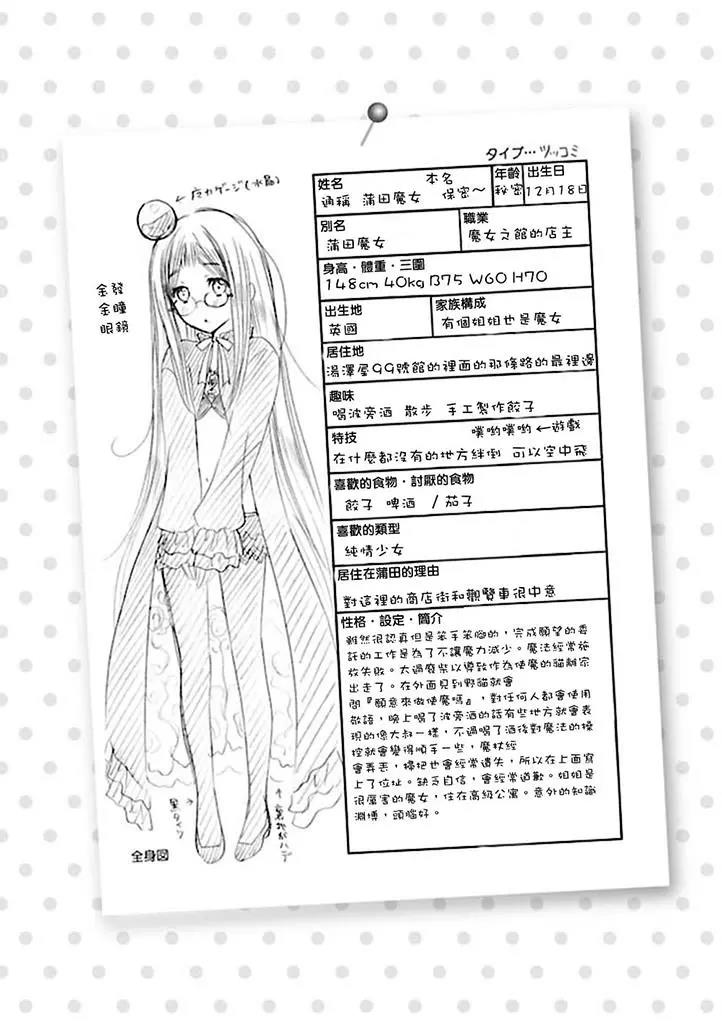 タイプ…ツッコミ
姓名 本名
通稱 蒲田魔女 保密～
年齡
秘密
出生日
12月18日
別名
蒲田魔女
職業
魔女之館的店主
身高・體重・三圍
148cm 40kg B75 W60 H70
出生地
英國
家族構成
有個姐姐也是魔女
居住地
湯澤屋99號館的裡面的那條路的最裡邊
趣味
喝波旁酒 散步 手工製作餃子
特技 噗喲噗喲←遊戲
在什麼都沒有的地方絆倒 可以空中飛
喜歡的食物・討厭的食物
餃子 啤酒 /茄子
喜歡的類型
純情少女
居住在蒲田的理由
對這裡的商店街和觀覽車很中意
性格・設定・簡介
雖然很認真但是笨手笨腦的，完成願望的委
託的工作是為了不讓魔力減少。魔法經常施
放失敗。太過廢柴以導致作為使魔的貓離家
出走了。在外面見到野貓就會
問『願意來做使魔嗎』，對任何人都會使用
敬語，晚上喝了波旁酒的話有些地方就會表
現的像大叔一樣，不過喝了酒後對魔法的操
控就會變得順手一些，魔杖經
會弄丟，掃把也會經常遺失，所以在上面寫
上了位址。缺乏自信，會經常道歉。姐姐是
很厲害的魔女，住在高級公寓。意外的知識
淵博，頭腦好。
←魔力ゲージ(水晶)
金發
金瞳
眼鏡
黒タイツ→
↑裏地がハデ
全身図